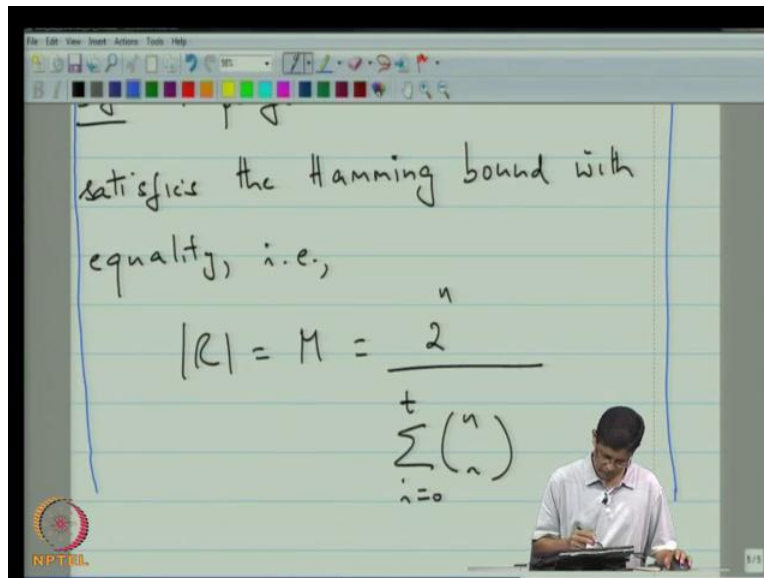 File Edit View Insert Actions Tools Help
satisfies the Hamming bound with
equality, i.e.,
|C| = M = 2^n / t Σ i=0 (n i)
NPTEL
5/5